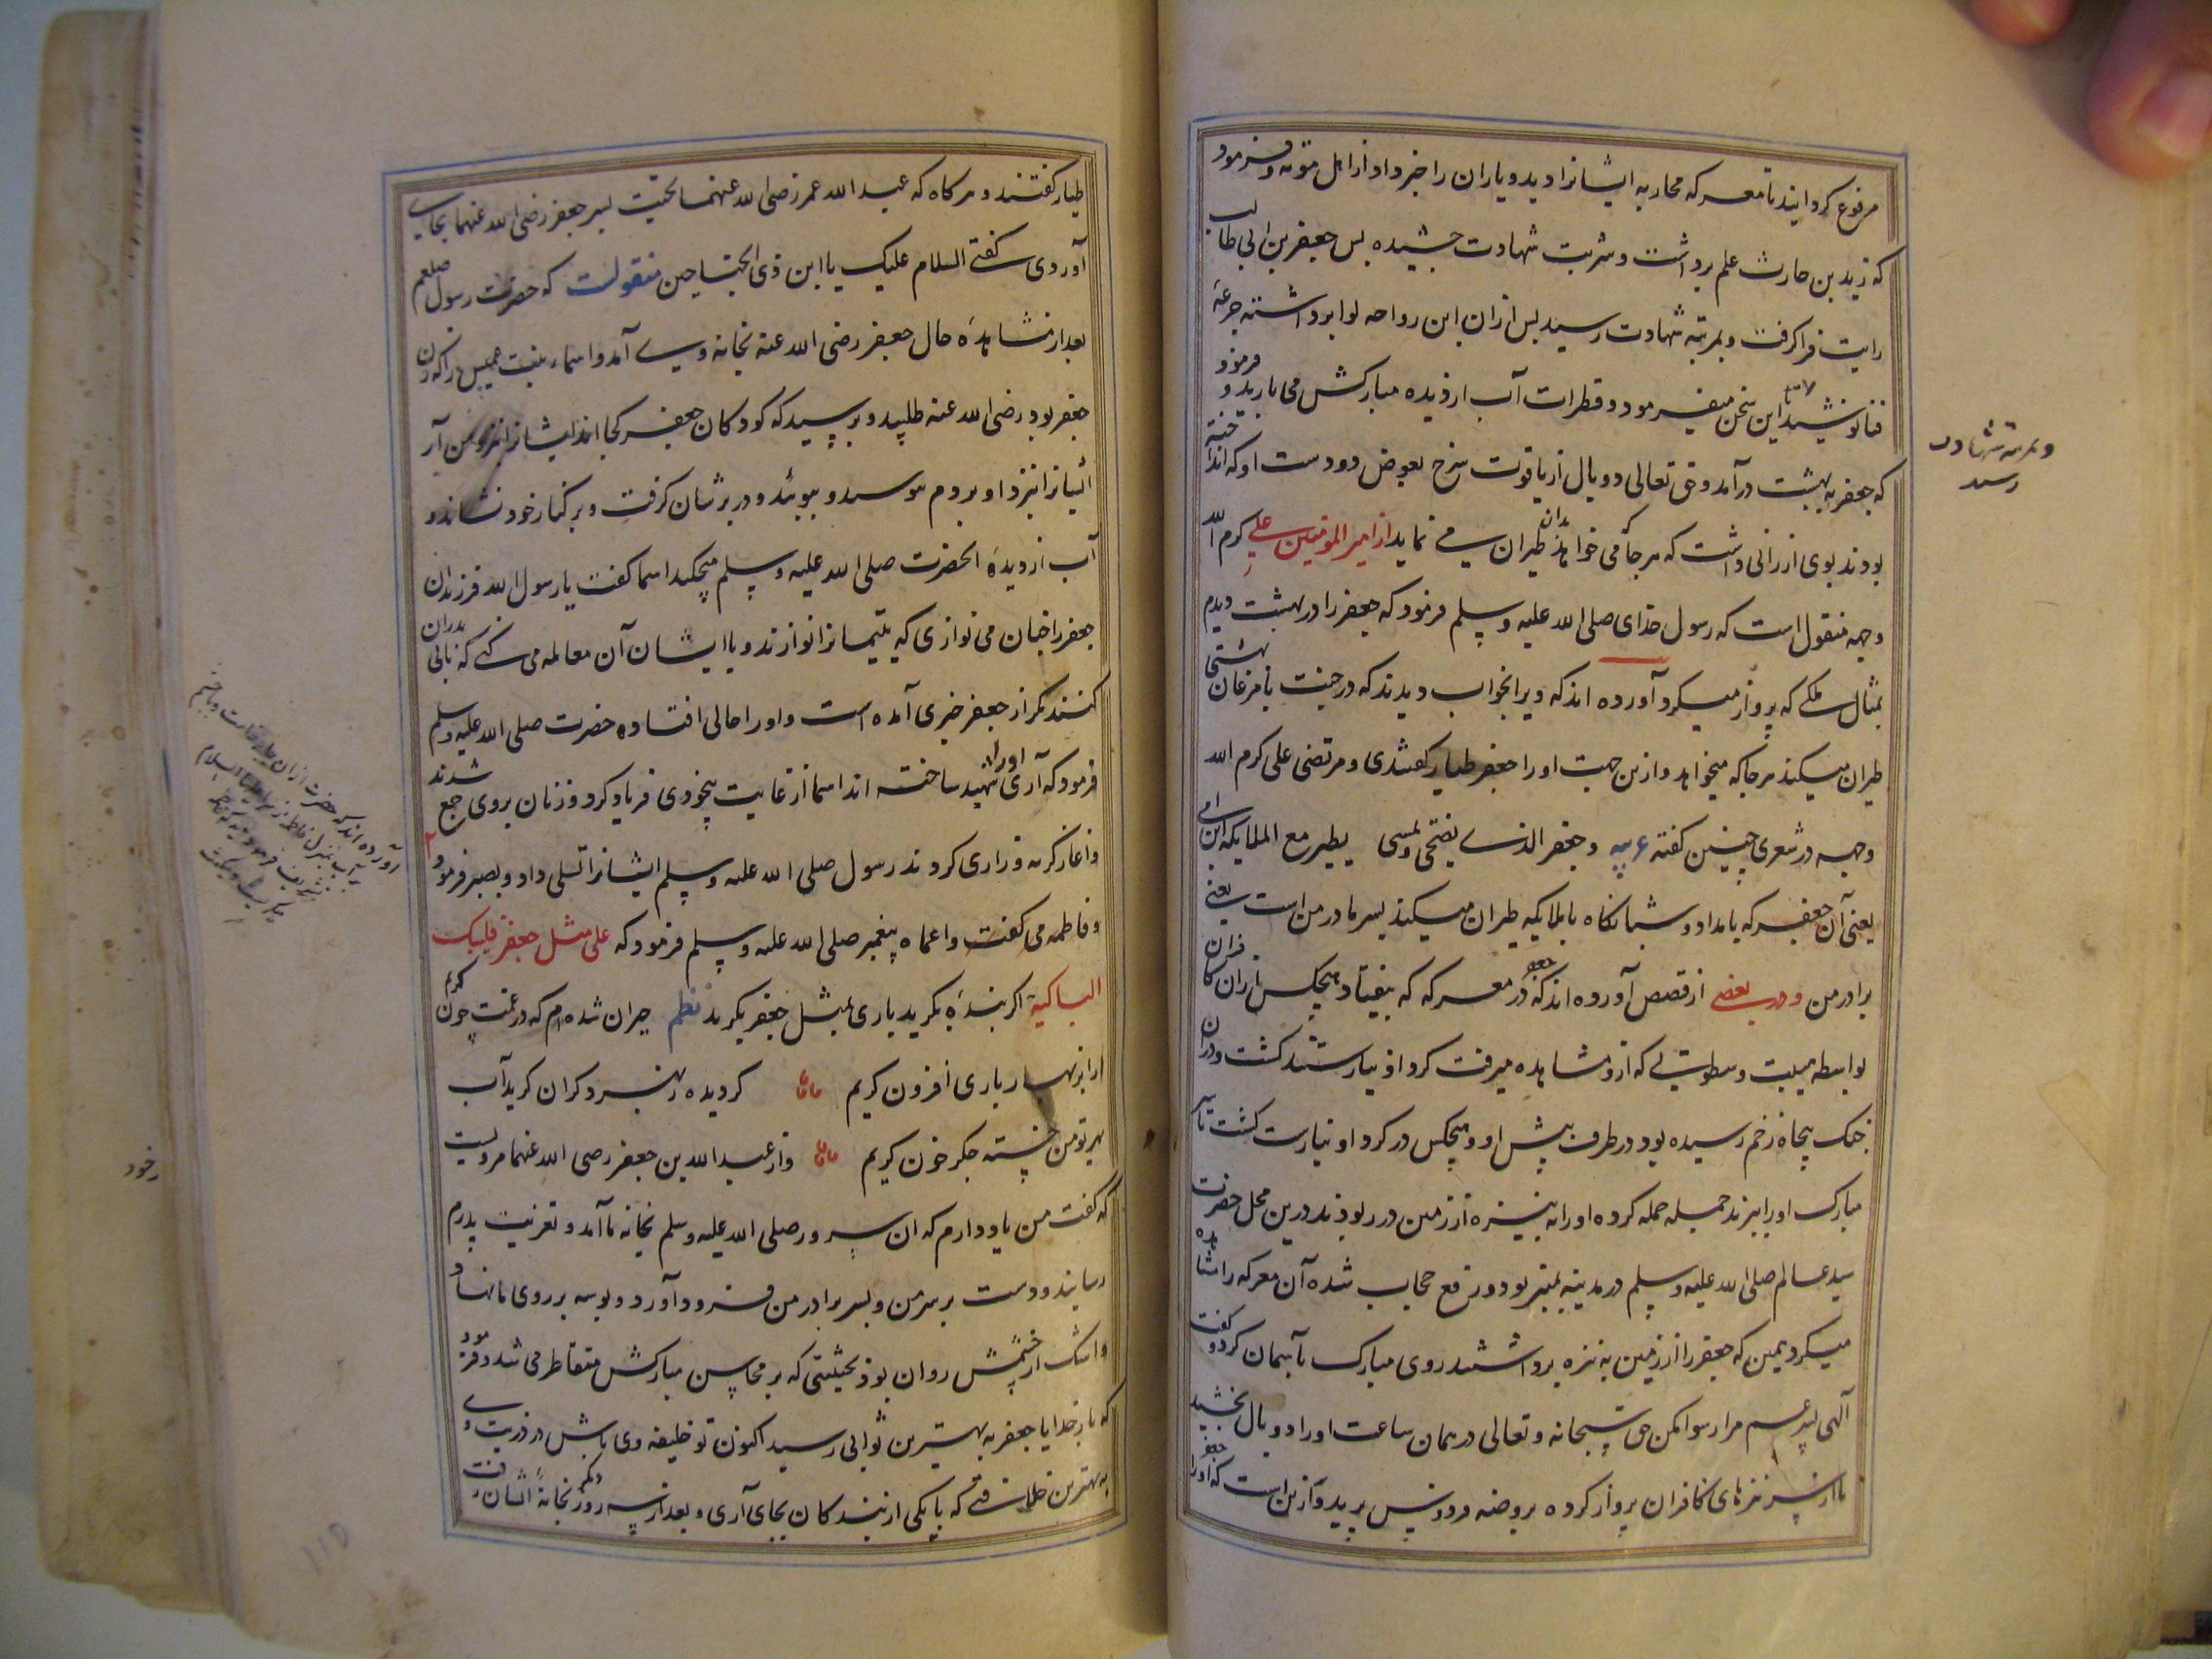 مرفوع گردانیدند تا معرکه محاربه ایشانرا دید و یاران را خبر داد از اهل موته و فرمود
که زید بن حارث علم برداشت و شربت شهادت چشیده پس جعفر بن ابی طالب
رایت فرا گرفت و بمرتبه شهادت رسید پس ازان ابن رواحه لوا برداشته جرعهٔ
فنا نوشید این سخن میفرمود و قطرات آب از دیده مبارکش می بارید و فرمود
و بمرتبه شهادت
رسید
که جعفر به بهشت درآمد و حق تعالی دو بال از یاقوت سرخ بعوض دو دست او که انداخته
بودند بوی ارزانی داشت که هر جا که می خواهد بدان طیران می نماید از امیر المومنین علی کرم الله
وجهه منقول است که رسول خدای صلی الله علیه و سلم فرمود که جعفر را در بهشت دیدم
بمثال ملکی که پرواز میکرد آورده اند که ویرا بخواب دیدند که در جنت با مرغان بهشتی
طیران میکند هر جا که میخواهد و ازین جهت او را جعفر طیار گفتندی و مرتضی علی کرم الله
وجهه در شعری چنین گفته عربیه و جعفر الذی یضحی و یمسی یطیر مع الملایکة ابن امی
یعنی آن جعفر که بامداد و شبانگاه با ملایکه طیران میکند پسر مادر من است یعنی
برادر من و در بعضی از قصص آورده اند که جعفر در معرکه که بیفتاد هیچکس ازان کافران
بواسطه هیبت و سطوتی که ازو مشاهده میرفت گرد او نیارستند گشت و دران
جنگ پنجاه زخم رسیده بود در طرف پیش او و هیچکس در گرد او نیارست گشت تا سر
مبارک او را ببرند جمله حمله کرده او را به نیزه از زمین در ربودند درین محل حضرت
سید عالم صلی الله علیه و سلم در مدینه بمنبر بود و رفع حجاب شده آن معرکه را مشاهده
میکرد همین که جعفر را از زمین به نیزه برداشتند روی مبارک بآسمان کرد و گفت
الهی پسر عم مرا رسوا مکن حق سبحانه و تعالی در همان ساعت او را دو بال بخشید
تا از سر نیزهای کافران پرواز کرده بروضه فردوس پرید و ازین است که او را جعفر
طیار گفتند و هر گاه که عبد الله عمر رضی الله عنهما تحیت پسر جعفر رضی الله عنهما بجای
آوردی گفتی السلام علیک یا ابن ذی الجناحین منقولست که حضرت رسول صلعم
بعد از مشاهدهٔ حال جعفر رضی الله عنه بخانه وی آمد و اسماء بنت عمیس را که زن
جعفر بود رضی الله عنه طلبید و پرسید که کودکان جعفر کجا اند ایشانرا نزد من آر
ایشانرا نزد او بردم بوسید و ببوئید و در برشان گرفت و بر کنار خود نشاند و
آب از دیدهٔ آنحضرت صلی الله علیه و سلم میچکید اسما گفت یا رسول الله فرزندان
جعفر را چنان می نوازی که یتیمانرا نوازند و با ایشان آن معامله می کنی که با بی پدران
کنند مگر از جعفر خبری آمده است و او را حالی افتاده حضرت صلی الله علیه و سلم
فرمود که آری او را شهید ساخته اند اسما از غایت بیخودی فریاد کرد و زنان بروی جمع شدند
و آغاز گریه و زاری کردند رسول صلی الله علیه و سلم ایشانرا تسلی داد و بصبر فرمود
و فاطمه می گفت واعماه پیغمبر صلی الله علیه و سلم فرمود که علی مثل جعفر فلیبک
الباکیة اگر بندهٔ بگرید باری بمثل جعفر بگرید نظم حیران شده ام که در غمت چون گریم
از ابر بهار باری افزون گریم گردیده بهر دگران گرید آب
بهر تو من خسته جگر خون گریم و از عبد الله بن جعفر رضی الله عنهما مرویست
که گفت من یاد دارم که آن سرور صلی الله علیه و سلم بخانه ما آمد و تعزیت پدرم
رسانید و دست بر سر من و بسر برادر من فرود آورد و بوسه بر روی ما نهاد
و اشک از چشمش روان بود بحیثیتی که بر محاسن مبارکش متقاطر می شد و فرمود
که بار خدایا جعفر به بهترین ثوابی رسید اکنون تو خلیفه وی باش در ذریت وی
به بهترین خلافتی که با یکی از بندگان بجای آری و بعد از سه روز دگر بخانهٔ ایشان رفت
آورده اند که حضرت ازان
بمنزل فاطمه زهرا علیها السلام
رخود
۱۱۵